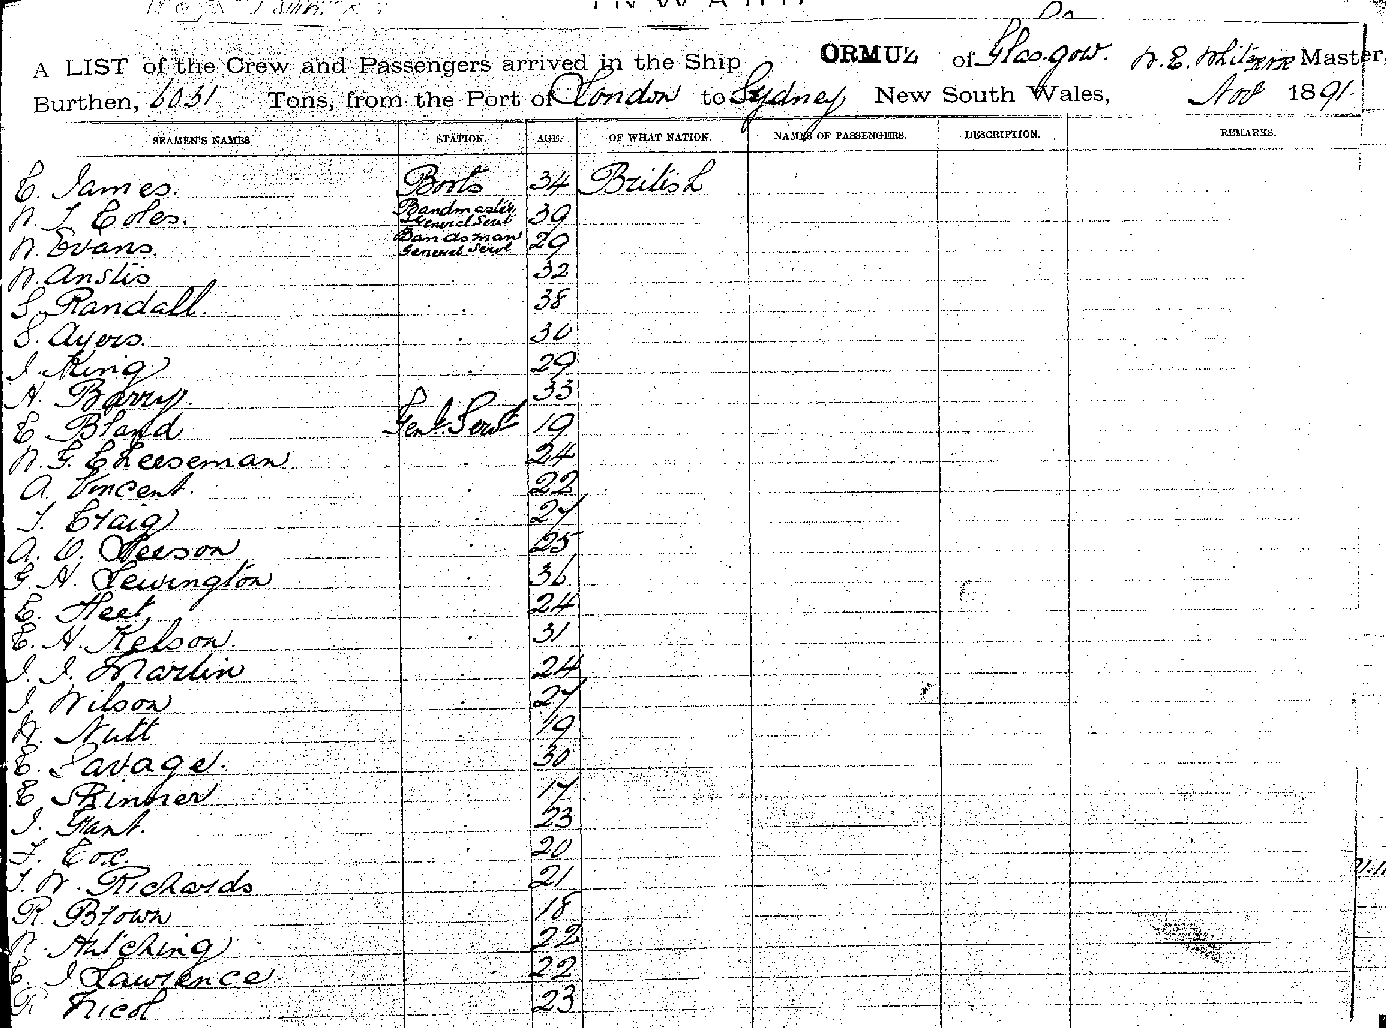 INWARD
A LIST of the Crew and Passengers arrived in the Ship ORMUZ of Glasgow. Master,
Burthen, 6031 Tons, from the Port of London to Sydney New South Wales, Nov 1891
SEAMEN'S NAMES STATION. AGE. OF WHAT NATION. NAMES OF PASSENGERS. DESCRIPTION. REMARKS.
C. James. Boots 34 British
W. T. Coles. Bandmaster General Servt 39
W. Evans. Bandsman General Servt 29
W. Anstis 32
S. Randall. 38
S. Ayers. 30
J. King 29
H. Barry. 33
E. Bland Genl. Servt 19
W. G. Cheeseman 24
A. Vincent. 22
T. Craig 27
A. O. 25
G. H. Lewington 36
E. 24
E. H. Kelson. 31
J. J. Martin 24
J. Wilson 27
W. Nutt 19
E. Savage. 30
E. Skinner 17
J. Gant. 23
T. Cox. 20
T. W. Richards 21
R. Brown 18
Hutching 22
J. Lawrence 22
R. Nicol 23